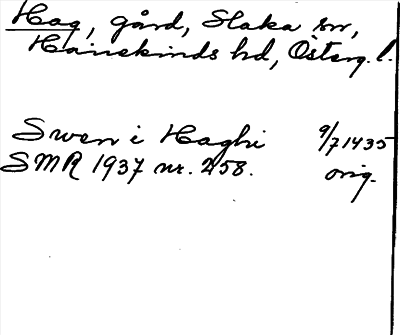 Hag, gård, Slaka sn,
Hanekinds hd, Österg. l.
Swen i Haghi 9/7 1435
SMR 1937 nr. 258. orig.